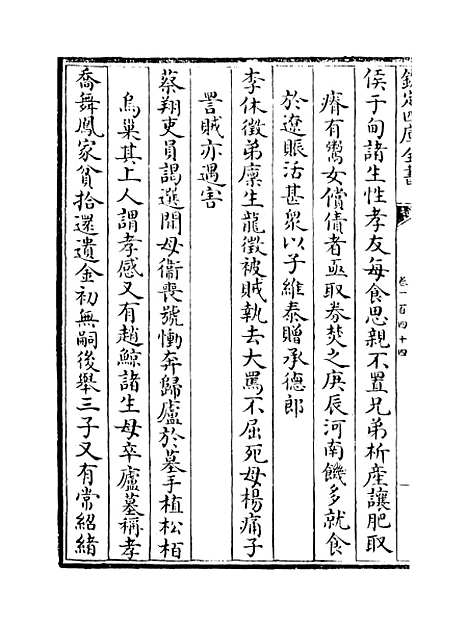 欽定四庫全書
卷一百四十四
侯于甸諸生性孝友每食思親不置兄弟析產讓肥取
瘠有鬻女償債者亟取券焚之庚辰河南饑多就食
於遼賑活甚衆以子維泰贈承德郎
李休徵弟廩生龍徵被賊執去大罵不屈死母楊痛子
詈賊亦遇害
蔡翔吏員謁選聞母衞喪號慟奔歸廬於墓手植松栢
烏巢其上人謂孝感又有趙鯨諸生母卒廬墓稱孝
喬舞鳳家貧拾還遺金初無嗣後舉三子又有常紹緒